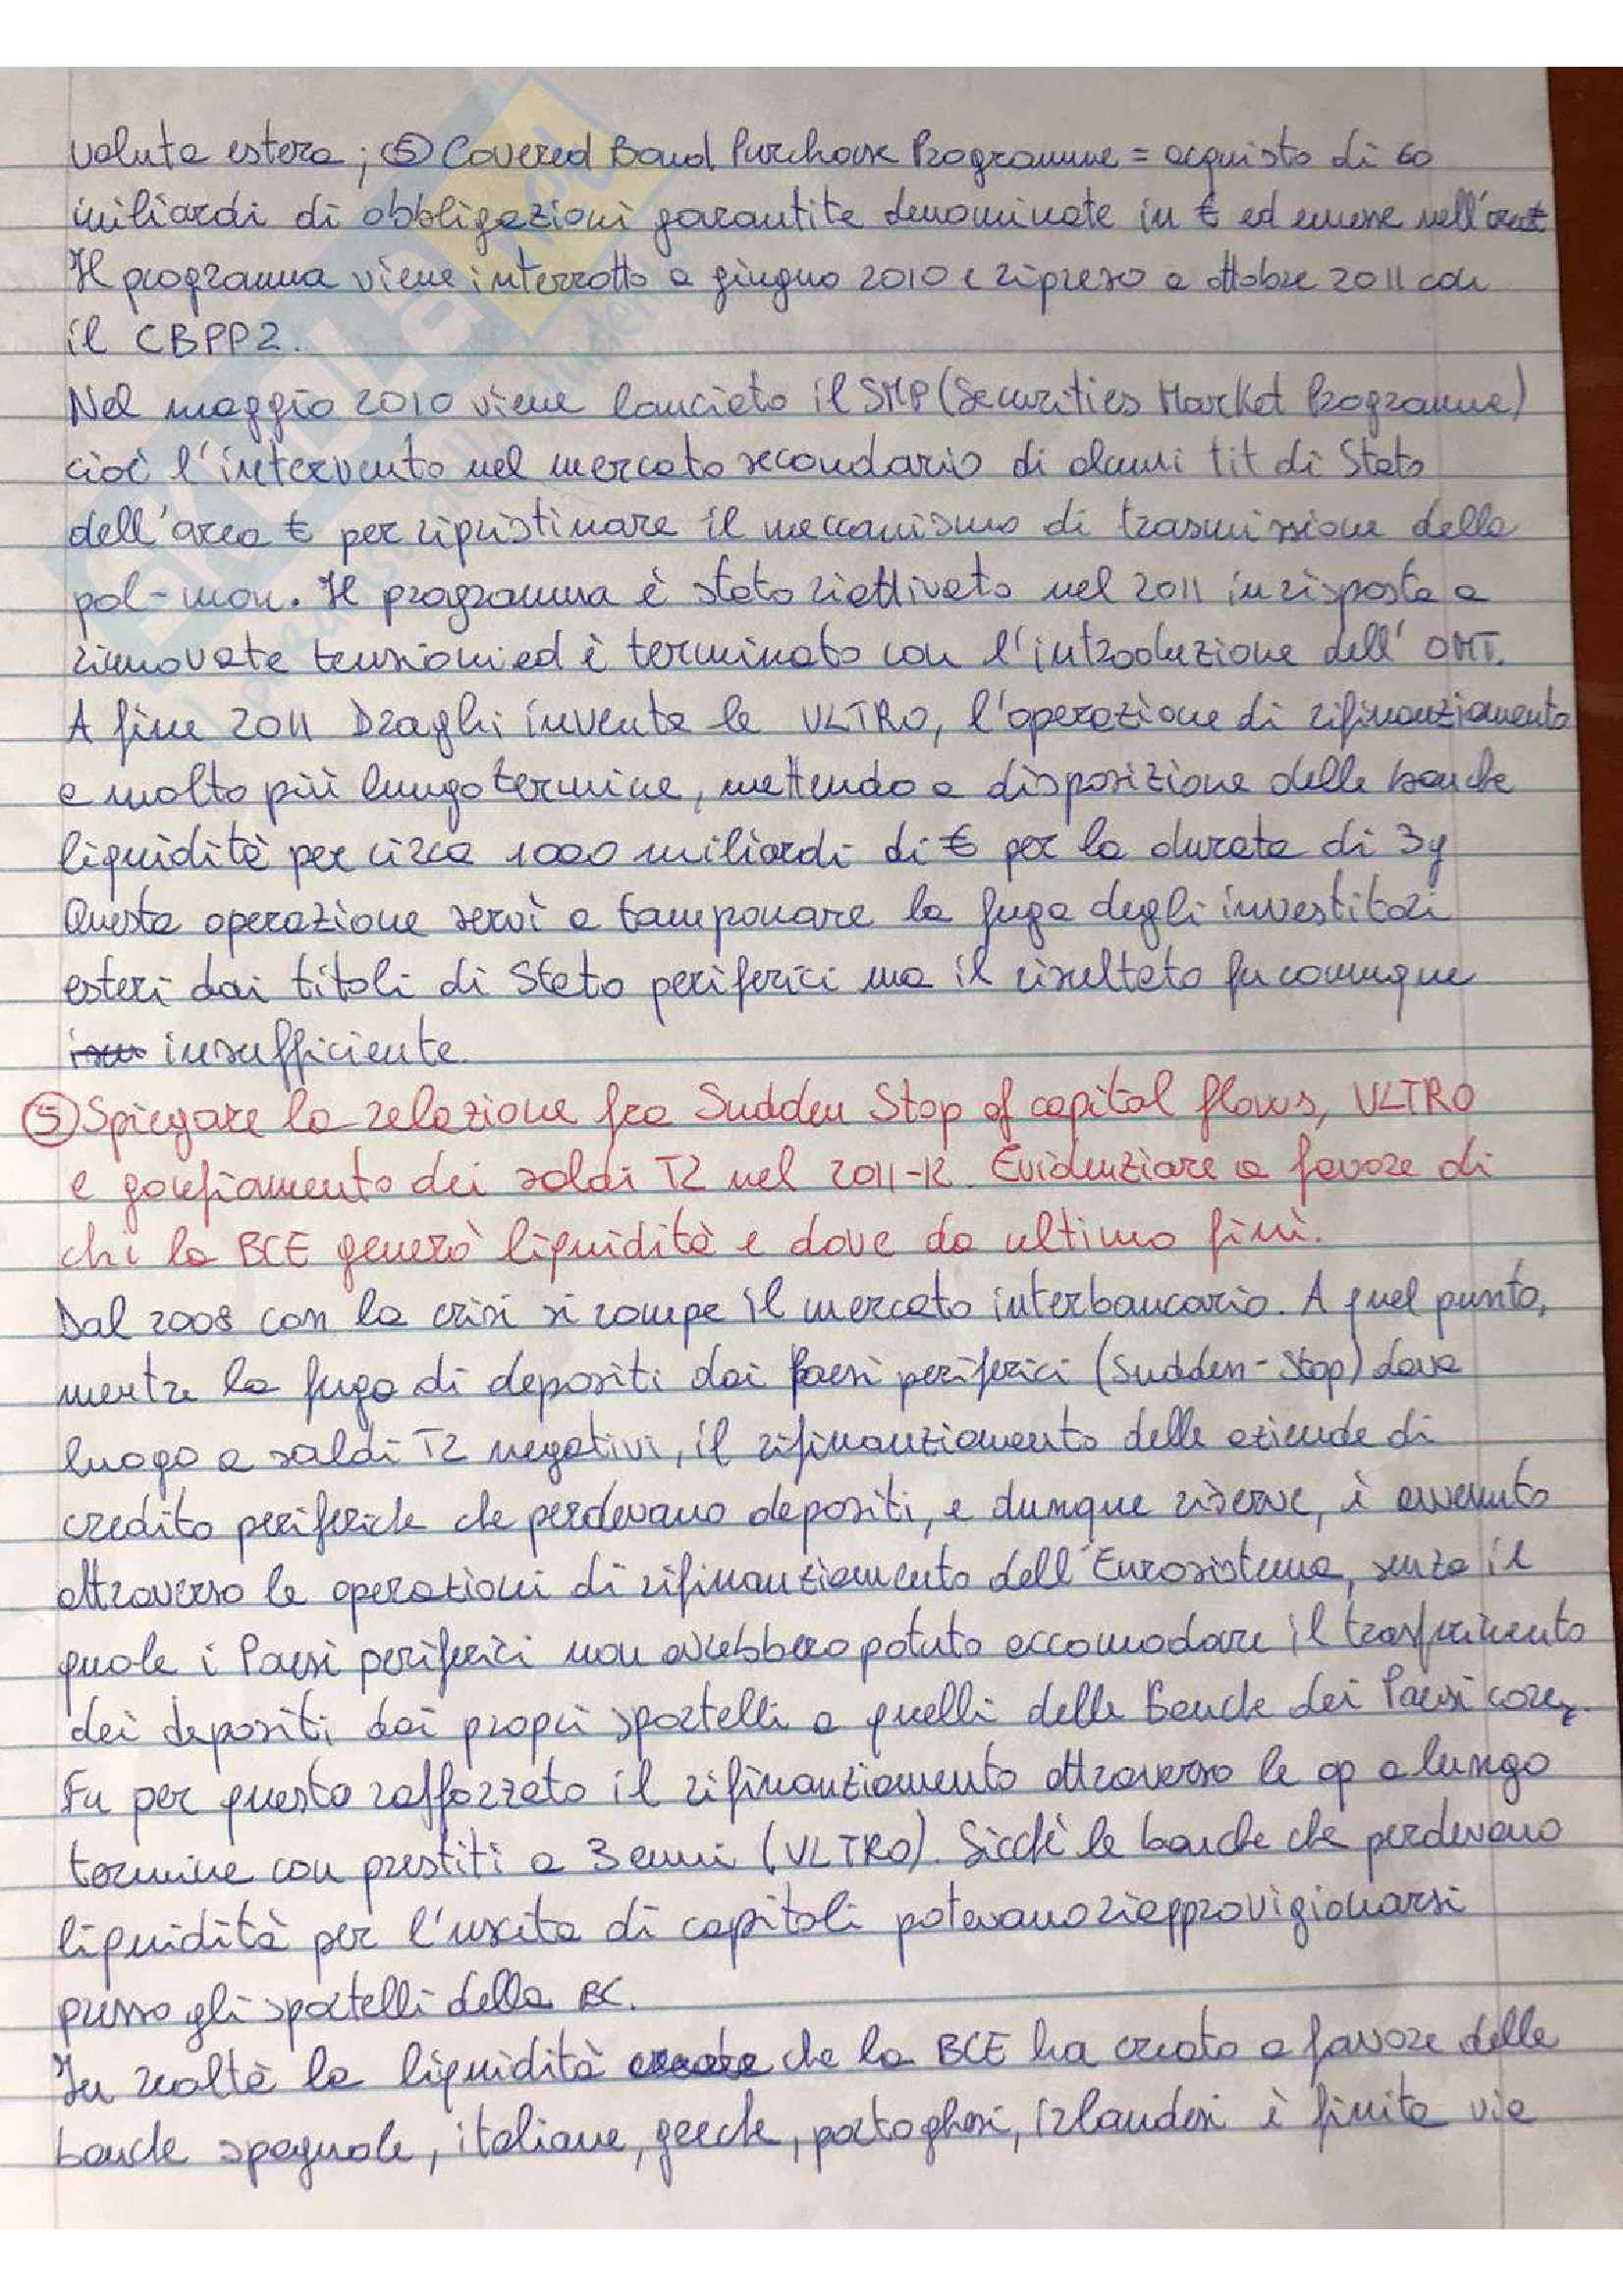 valuta estera; ⑤ Covered Bond Purchase Programme = acquisto di 60
miliardi di obbligazioni garantite denominate in € ed emesse nell'area €
Il programma viene interrotto a giugno 2010 e ripreso a ottobre 2011 con
il CBPP2.
Nel maggio 2010 viene lanciato il SMP (Securities Market Programme)
cioè l'intervento nel mercato secondario di alcuni tit di Stato
dell'area € per ripristinare il meccanismo di trasmissione della
pol-mon. Il programma è stato riattivato nel 2011 in risposta a
rinnovate tensioni ed è terminato con l'introduzione dell' OMT.
A fine 2011 Draghi inventa le VLTRO, l'operazione di rifinanziamento
a molto più lungo termine, mettendo a disposizione delle banche
liquidità per circa 1000 miliardi di € per la durata di 3y
Questa operazione servì a tamponare la fuga degli investitori
esteri dai titoli di Stato periferici ma il risultato fu comunque
insufficiente.
⑤ Spiegare la relazione fra Sudden Stop of capital flows, VLTRO
e gonfiamento dei saldi T2 nel 2011-12. Evidenziare a favore di
chi la BCE generò liquidità e dove da ultimo finì.
Dal 2008 con la crisi si rompe il mercato interbancario. A quel punto,
mentre la fuga di depositi dai Paesi periferici (Sudden-Stop) dava
luogo a saldi T2 negativi, il rifinanziamento delle aziende di
credito periferiche che perdevano depositi, e dunque riserve, è avvenuto
attraverso le operazioni di rifinanziamento dell'Eurosistema, senza il
quale i Paesi periferici non avrebbero potuto accomodare il trasferimento
dei depositi dai propri sportelli a quelli delle banche dei Paesi core.
Fu per questo rafforzato il rifinanziamento attraverso le op a lungo
termine con prestiti a 3 anni (VLTRO). Sicchè le banche che perdevano
liquidità per l'uscita di capitali potevano riapprovigionarsi
presso gli sportelli della BC.
In realtà la liquidità che la BCE ha creato a favore delle
banche spagnole, italiane, greche, portoghesi, irlandesi è finita via